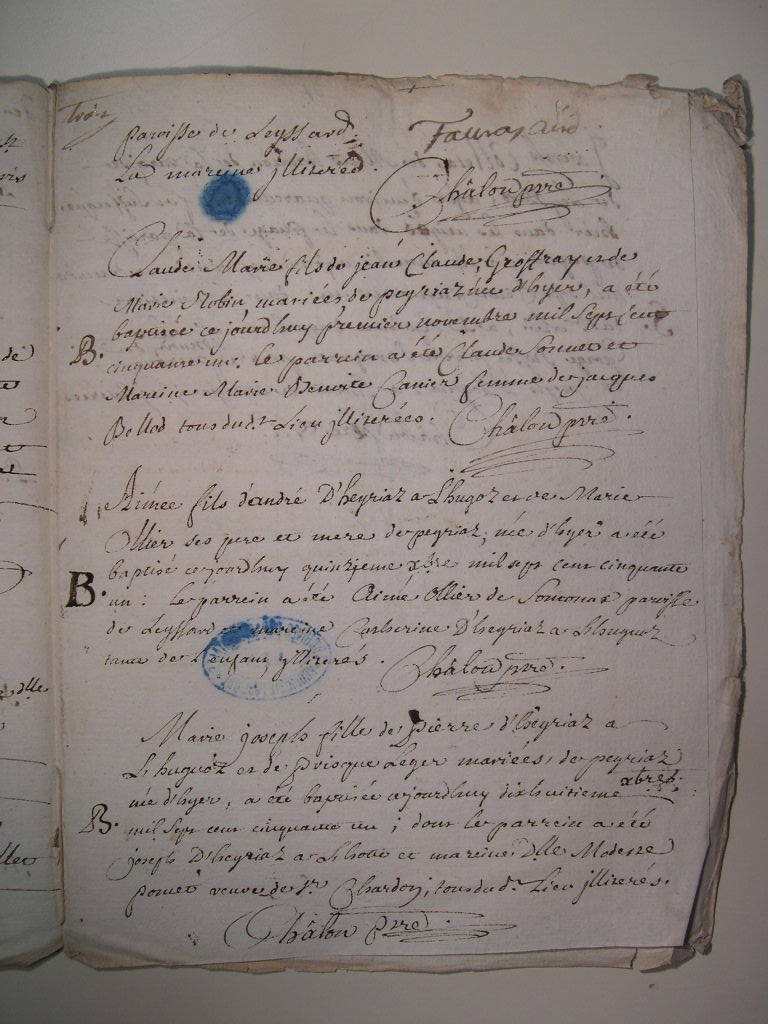 Trois
paroisse de Leyssard.
La mareine jlliterée.
Chalon pvre
Claude Marie fils de jean Claude Geoffray et de
Marie Robin mariées de peyriaz née d'hyer, a été
baptisée ce jourdhuy premier novembre mil sept cent
B.
cinquante un. le parrein a été Claude Sonnet et
Mareine Marie Benoite Canier femme de jacques
Bellod tous dud.t Lieu jlliterées.
Chalon pvre.
Aimée fils d'andré D'heyriaz a Lhugoz et de Marie
Ollier ses pere et mere de peyriaz, née d'hyer a été
baptisé ce jourdhuy quinzieme xbre mil sept cent cinquante
B.
un: le parrein a été Aimé Ollier de Sonthonax paroisse
de Leyssard et mareine Catherine D'heyriaz a Lhuguoz
tante de L'enfant jlliterés.
Chalon pvre.
Marie joseph fille de Pierre d'heyriaz a
Lhuguoz et de Prisque Léger mariées de peyriaz
née d'hyer, a été baptisée ajourdhuy dixhuitieme xbres.
B.
mil sept cent cinquante un; dont le parrein a été
joseph D'heyriaz a et mareine Dlle Modeste
pomet veuve de Sr. Chardon; tous du dt. Lieu jlliterés.
Chalon pvre.